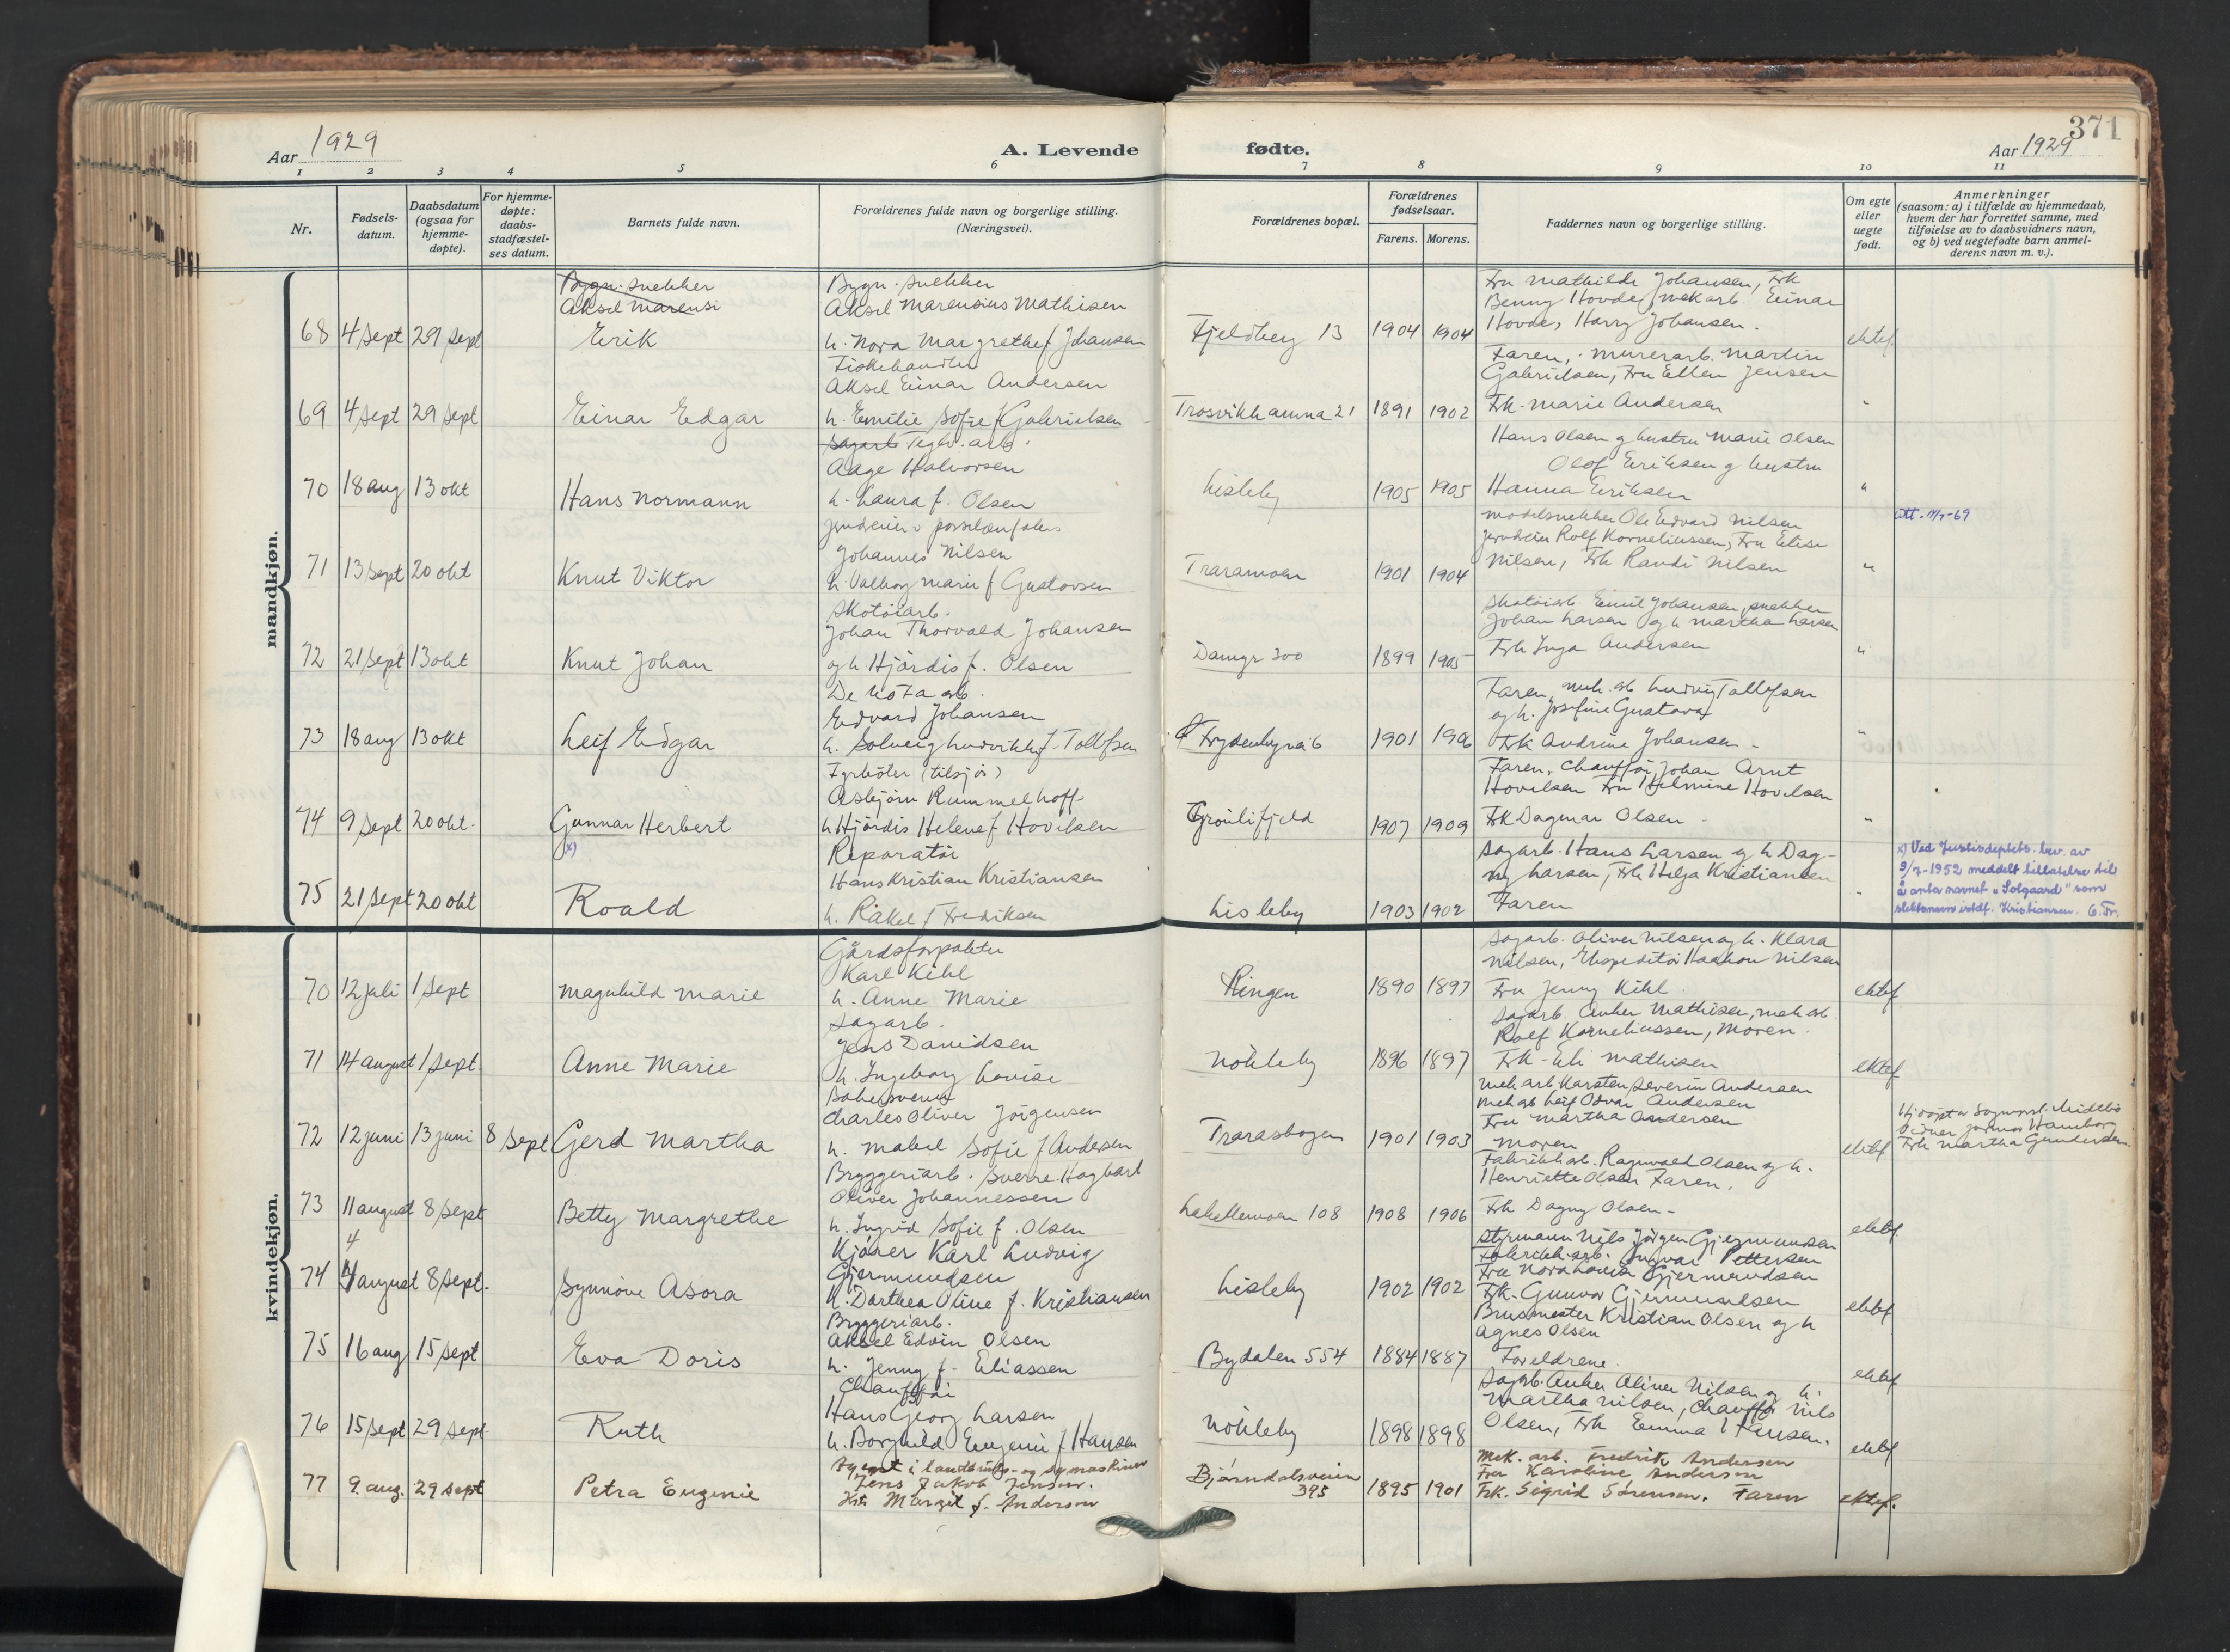 371
Aar 1929
A. Levende
fødte.
Aar 1929
1 2 3 4 5 6 7 8 9 10 11
Nr.
Fødsels-
datum.
Daabsdatum
(ogsaa for
hjemme-
døpte).
For hjemme-
døpte:
daabs-
stadfæstel-
ses datum.
Barnets fulde navn.
Forældrenes fulde navn og borgerlige stilling.
(Næringsvei).
Forældrenes bopæl.
Forældrenes
fødselsaar.
Farens. Morens.
Faddernes navn og borgerlige stilling.
Om egte
eller
uegte
født.
Anmerkninger
(saasom: a) i tilfælde av hjemmedaab,
hvem der har forrettet samme, med
tilføielse av to daabsvidners navn,
og b) ved uegtefødte barn anmel-
derens navn m. v.).
mandkjøn.
Bygn. snekker
Aksel Marensi
68 4 Sept 29 sept
Erik
Bygn. snekker
Aksel Marensius Mathisen
h. Nora Margrethe f Johansen
Fjeldberg 13
1904 1904
Fru Mathilde Johansen, Frk
Benny Hovde, mek arb Einar
Hovde, Harry Johansen.
ektef
69 4 Sept 29 sept
Einar Edgar
Fiskehandler
Aksel Einar Andersen
h. Emilie Sofie f Gabrielsen
Trosvikhamna 21
1891 1902
Faren, murerarb. Martin
Gabrielsen, Fru Ellen Jensen
Frk. Marie Andersen
"
70 18 aug 13 okt
Hans Normann
Sagarb Teglv. arb.
Aage Halvorsen
h. Laura f. Olsen
Lisleby
1905 1905
Hans Olsen g hustru Marie Olsen
Olof Eriksen g hustru
Hanna Eriksen
"
71 13 sept 20 okt
Knut Viktor
Johannes Nilsen
h. Valborg Marie f Gustavsen
Traramoen
1901 1904
modelsnekker Ole Edvard Nilsen
Rolf Korneliussen, Fru Elise
Nilsen, Frk Randi Nilsen
"
72 21 sept 13 okt
Knut Johan
Skotøiarb.
Johan Thorvald Johansen
og h. Hjördis f. Olsen
Damgr 300
1899 1905
Skotøiarb. Emil Johansen, snekker
Johan Larsen og h Martha Larsen
Frk Inga Andersen
"
73 18 aug 13 okt
Leif Edgar
De No Fa arb.
Edvard Johansen
h. Solveig Ludvikke f. Tollefsen
1901 1906
Faren, mek. arb Ludvig Tollefsen
og h. Josefine Gustava
Frk Andrine Johansen -
"
74 9 sept 20 okt.
Gunnar Herbert
x)
Fyrbøter (tilsjøs)
Asbjørn Rummelhoff
h Hjördis Helene f Hovelsen
Grønlifjeld
1907 1909
Faren, Chauffør Johan Arnt
Hovelsen Fru Hilmine Hovelsen
Frk Dagmar Olsen -
"
75 21 sept 20 okt
Roald
Reparatør
Hans Kristian Kristiansen
h. Rakel f Fredriksen
Lisleby
1903 1902
Sagarb. Hans Larsen g h Dag-
ny Larsen, Frk Helga Kristiansen
Faren
"
x) Ved Justisdeptets. bev. av
9/7-1952 meddelt tillatelse til
å anta navnet „Solgaard" som
slektsnavn istdf. Kristiansen. G. Fr.
kvindekjøn.
70 12 juli 1 sept
Magnhild Marie
Gårdsforpakter
Karl Kihl
h. Anne Marie
Ringen
1890 1897
Sagarb. Oliver Nilsen og h. Klara
Nilsen, Ekspeditør Haakon Nilsen
Fru Jenny Kihl
ektef
71 14 august 1 sept.
Anne Marie
Sagarb.
Jens Davidsen
h. Ingeborg Lovise
Nökleby
1896 1897
Sagarb. Anker Mathisen, mek arb
Rolf Korneliussen, Moren.
Frk. Eli Mathisen
ektef
72 12 juni 13 juni 8 sept
Gerd Martha
Bakersvenn
Charles Oliver Jörgensen
h. Mabel Sofie f Andersen
Trarasbogen
1901 1903
mek arb Karsten Severin Andersen
mek arb Leif Odvar Andersen
Fru Martha Andersen
Moren
ektef
Frk Martha Gundersen
73 11 august 8 sept
Betty Margrethe
Bryggeriarb. Sverre Hagbart
Oliver Johannessen
h. Ingrid Sofie f. Olsen
108
1908 1906
Fabrikkarb. Ragnvald Olsen og h.
Henriette Olsen Faren.
Frk Dagny Olsen -
ektef
74 4 august 8 sept.
Synnöve Asora
Kjører Karl Ludvig
Gjermundsen
h. Dorthea Oline f. Kristiansen
Lisleby
1902 1902
Styrmann Nils Jörgen Gjermundsen
Fabrikk.arb. Ingvar Pettersen
Fru Nora Lovise Gjermundsen
Frk. Gunvor Gjermundsen
ektef
75 16 aug 15 sept
Eva Doris
Bryggeriarb.
Aksel Edvin Olsen
h. Jenny f. Eliassen
Bydalen 554
1884 1887
Brusmester Kristian Olsen g h
Agnes Olsen
Foreldrene.
ektef
76 15 sept 29 sept.
Ruth
Chauffør
Hans Georg Larsen
h. Borghild Eugenie f Hansen
Nökleby
1898 1898
Sagarb. Anker Oliver Nilsen g h.
Martha Nilsen, Chauffør Nils
Olsen, Frk Emma Hansen.
ektef
77 9. aug. 29 sept
Petra Eugenie
Agent i landbruks- og symaskiner
Jens Jakob Jensen.
Margit f. Andersen
Bjørndalsveien
395
1895 1901
Mek. arb. Fredrik Andersen
Fru Karoline Andersen
Frk. Sigrid Sørensen. Faren
ektef.